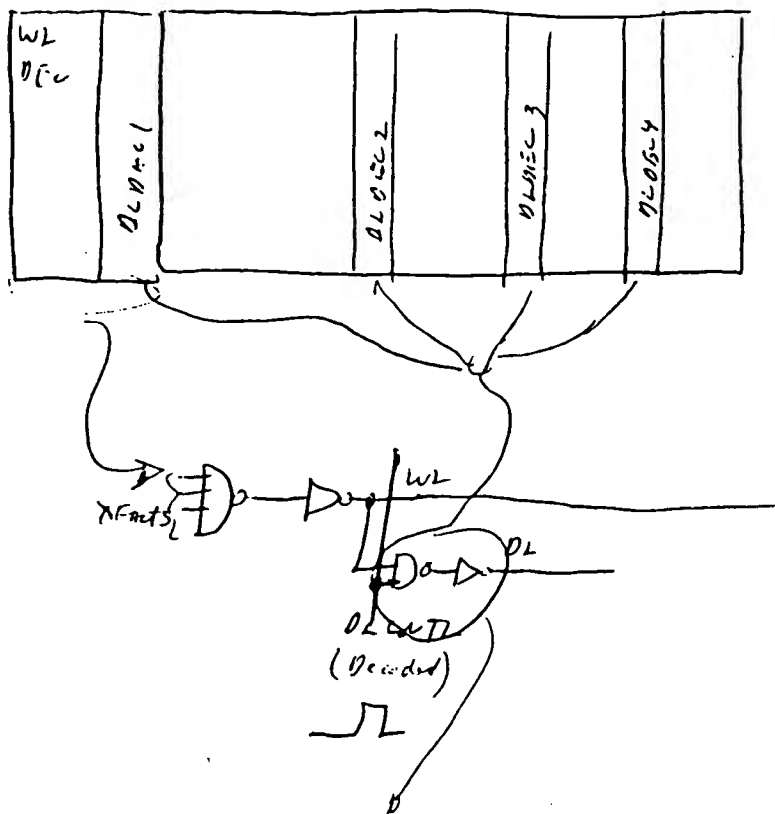 WL
DEC
DLDEC1
DLDEC2
DLDEC3
DLDEC4
WL
XFACTS
DL
DL
(Decoded)